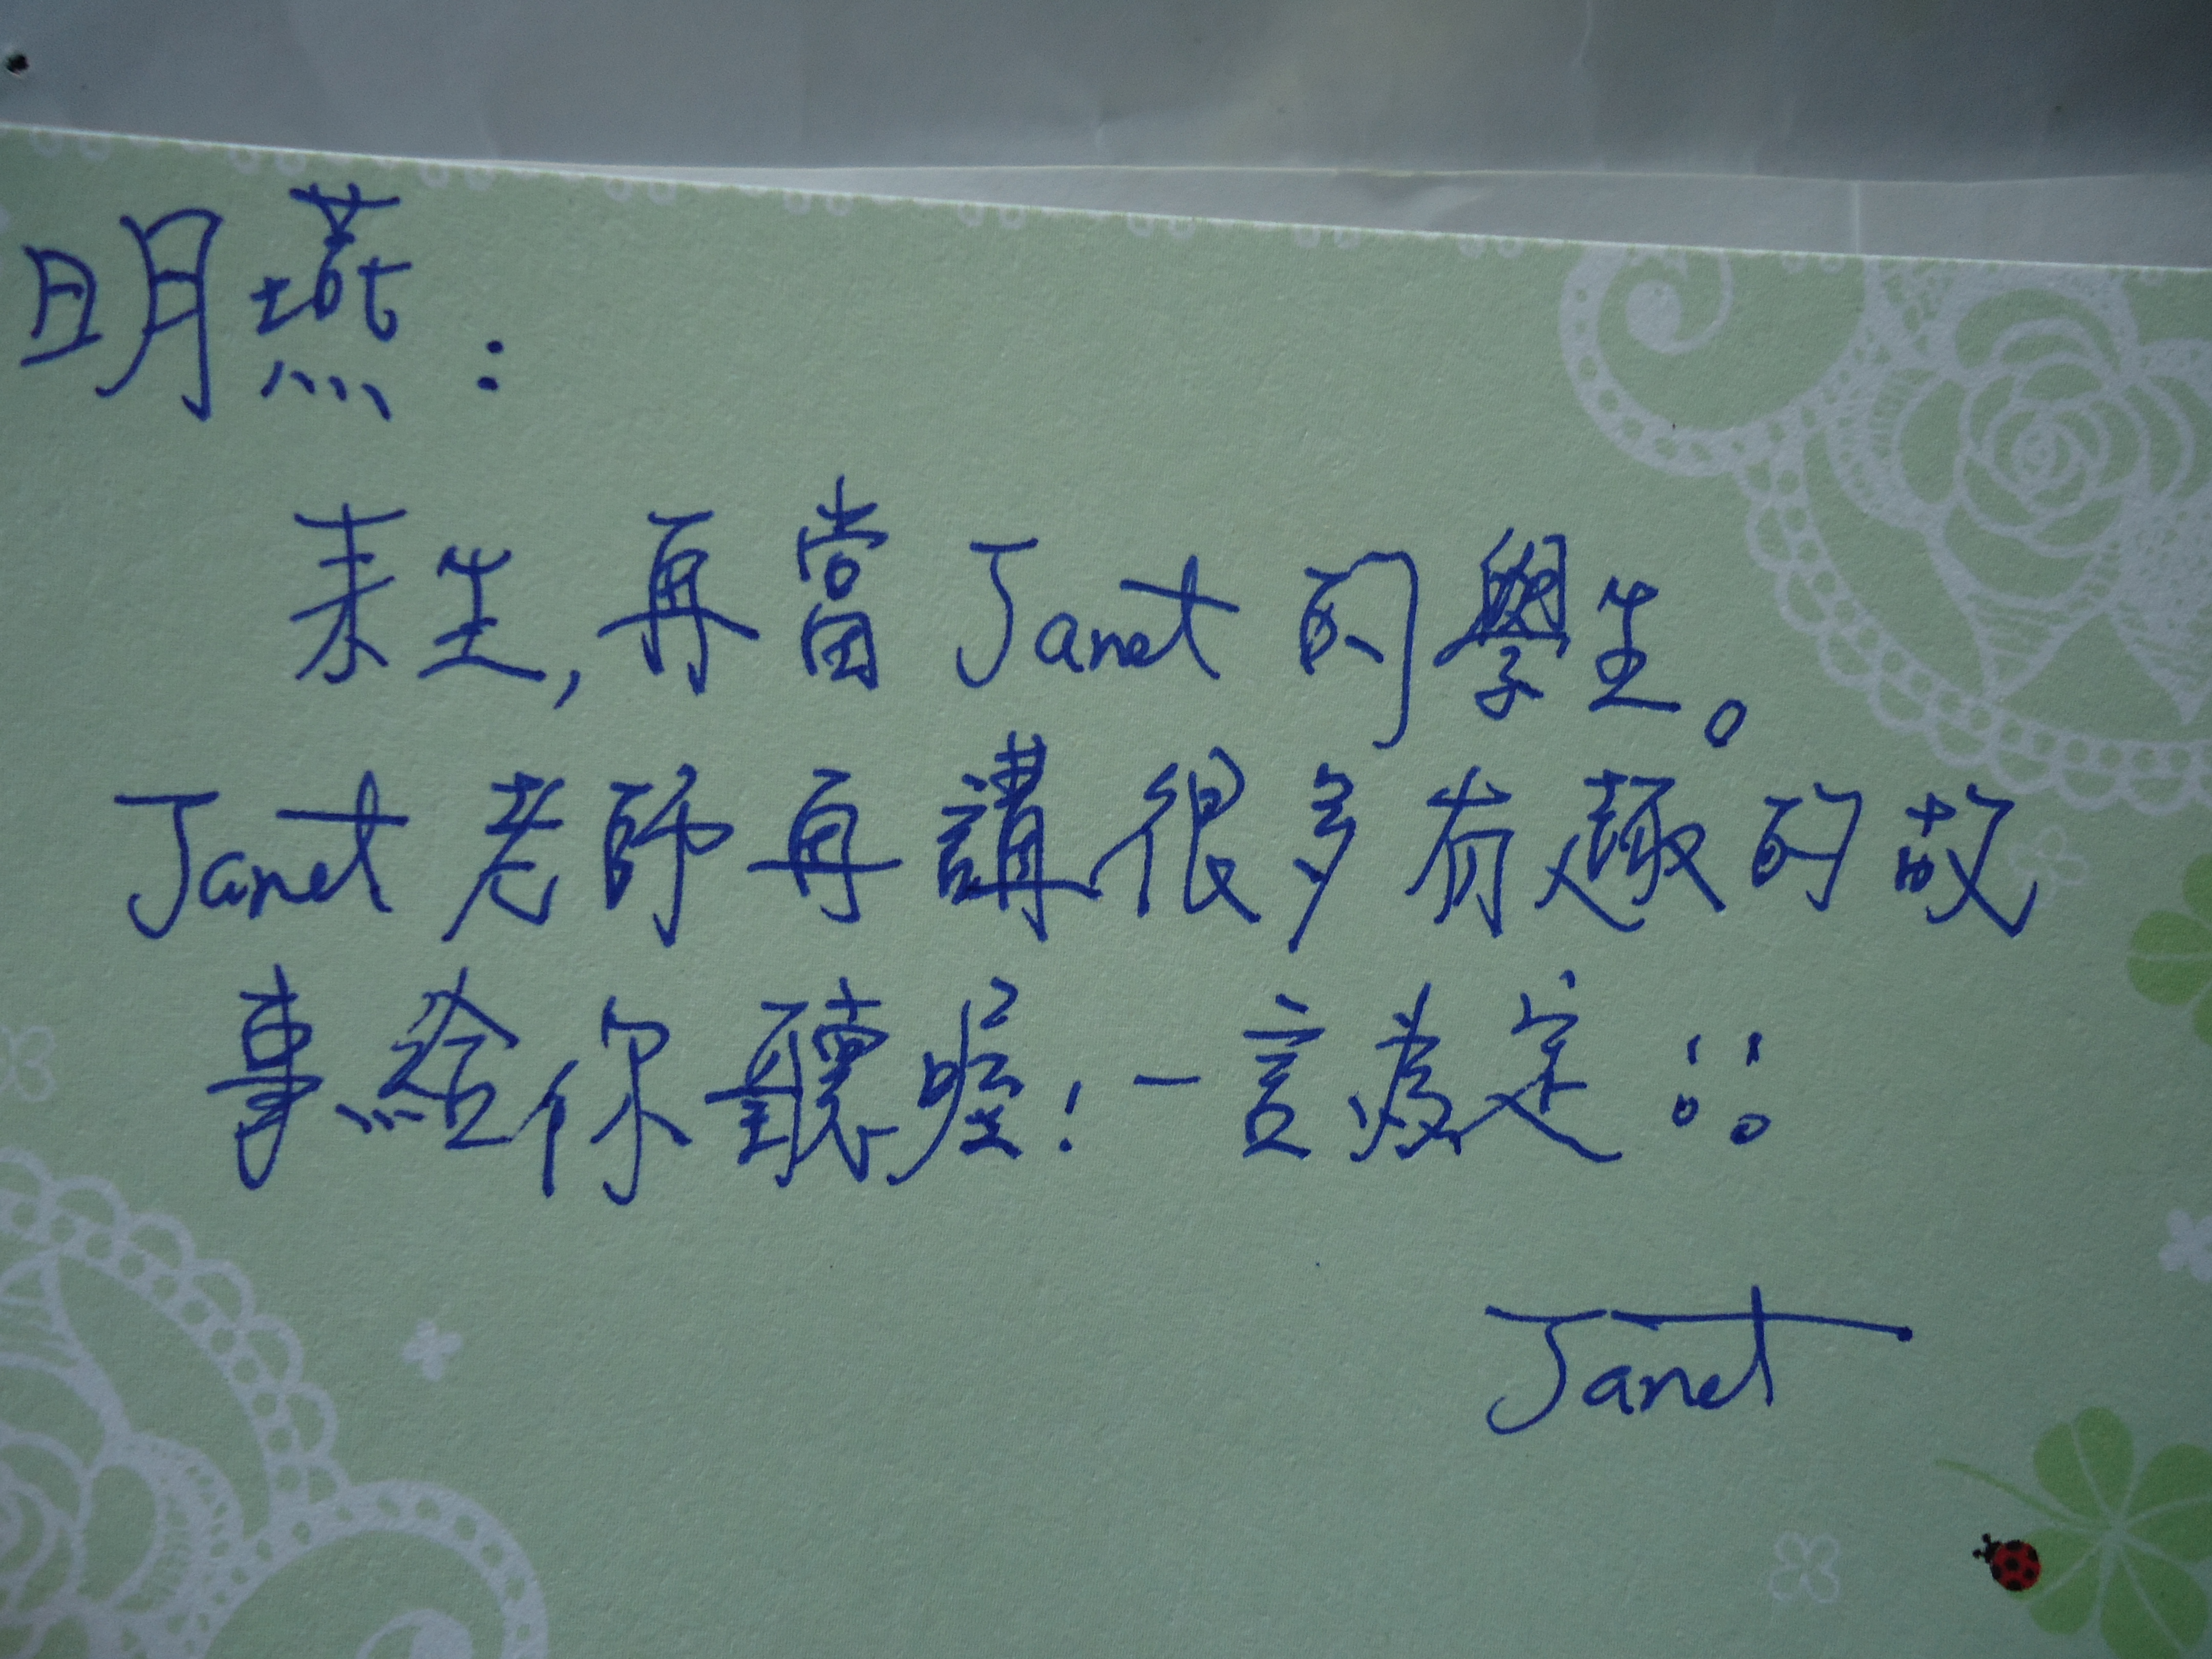 明燕：
來生，再當Janet的學生。
Janet老師再講很多有趣的故
事給你聽喔！一言為定!!
Janet